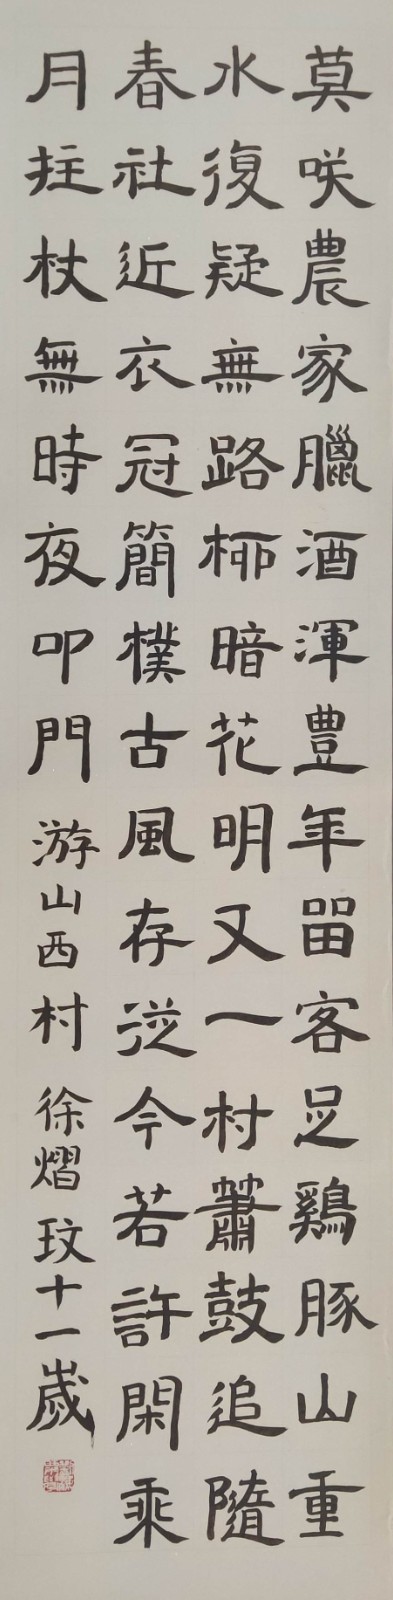 莫咲農家臘酒渾豊年留客足鷄豚山重
水復疑無路柳暗花明又一村簫鼓追隨
春社近衣冠簡樸古風存從今若許閑乘
月拄杖無時夜叩門 游山西村 徐熠玟十一歲